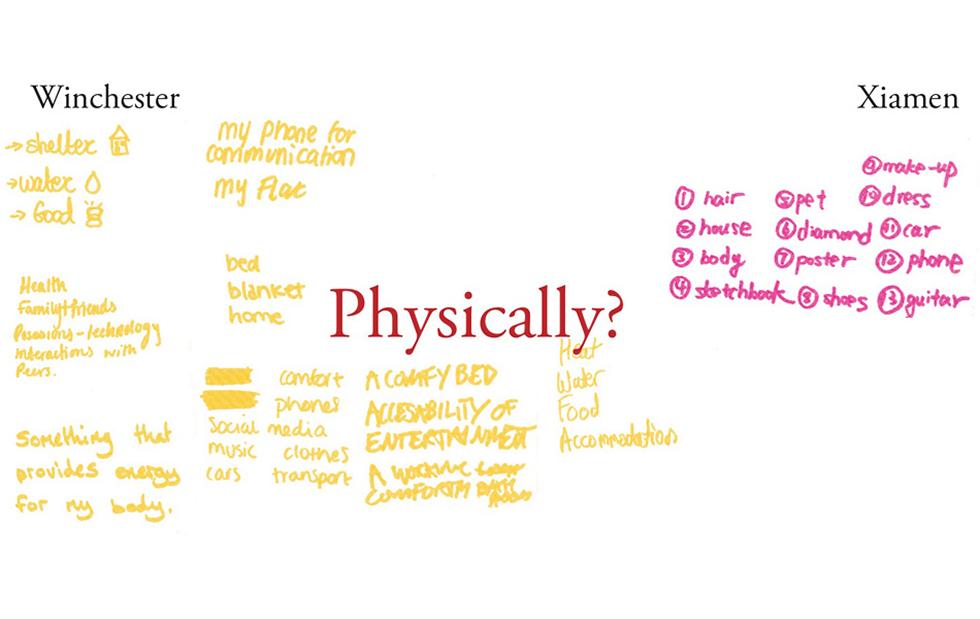 Winchester
Xiamen
→ shelter
→ water
→ Good
my phone for
communication
my Flat
bed
blanket
home
Health
Family+friends
Possesions-technology
Interactions with
Peers.
Something that
provides energy
for my body.
comfort
phones
Social media
music clothes
cars transport
Physically?
A COMFY BED
ACCESABILITY OF
ENTERTAINMENT
A WORKING
Heat
Water
Food
Accommodations
① hair
② house
③ body
④ sketchbook
⑤ pet
⑥ diamond
⑦ poster
⑧ shoes
⑨ make-up
⑩ dress
⑪ car
⑫ phone
⑬ guitar